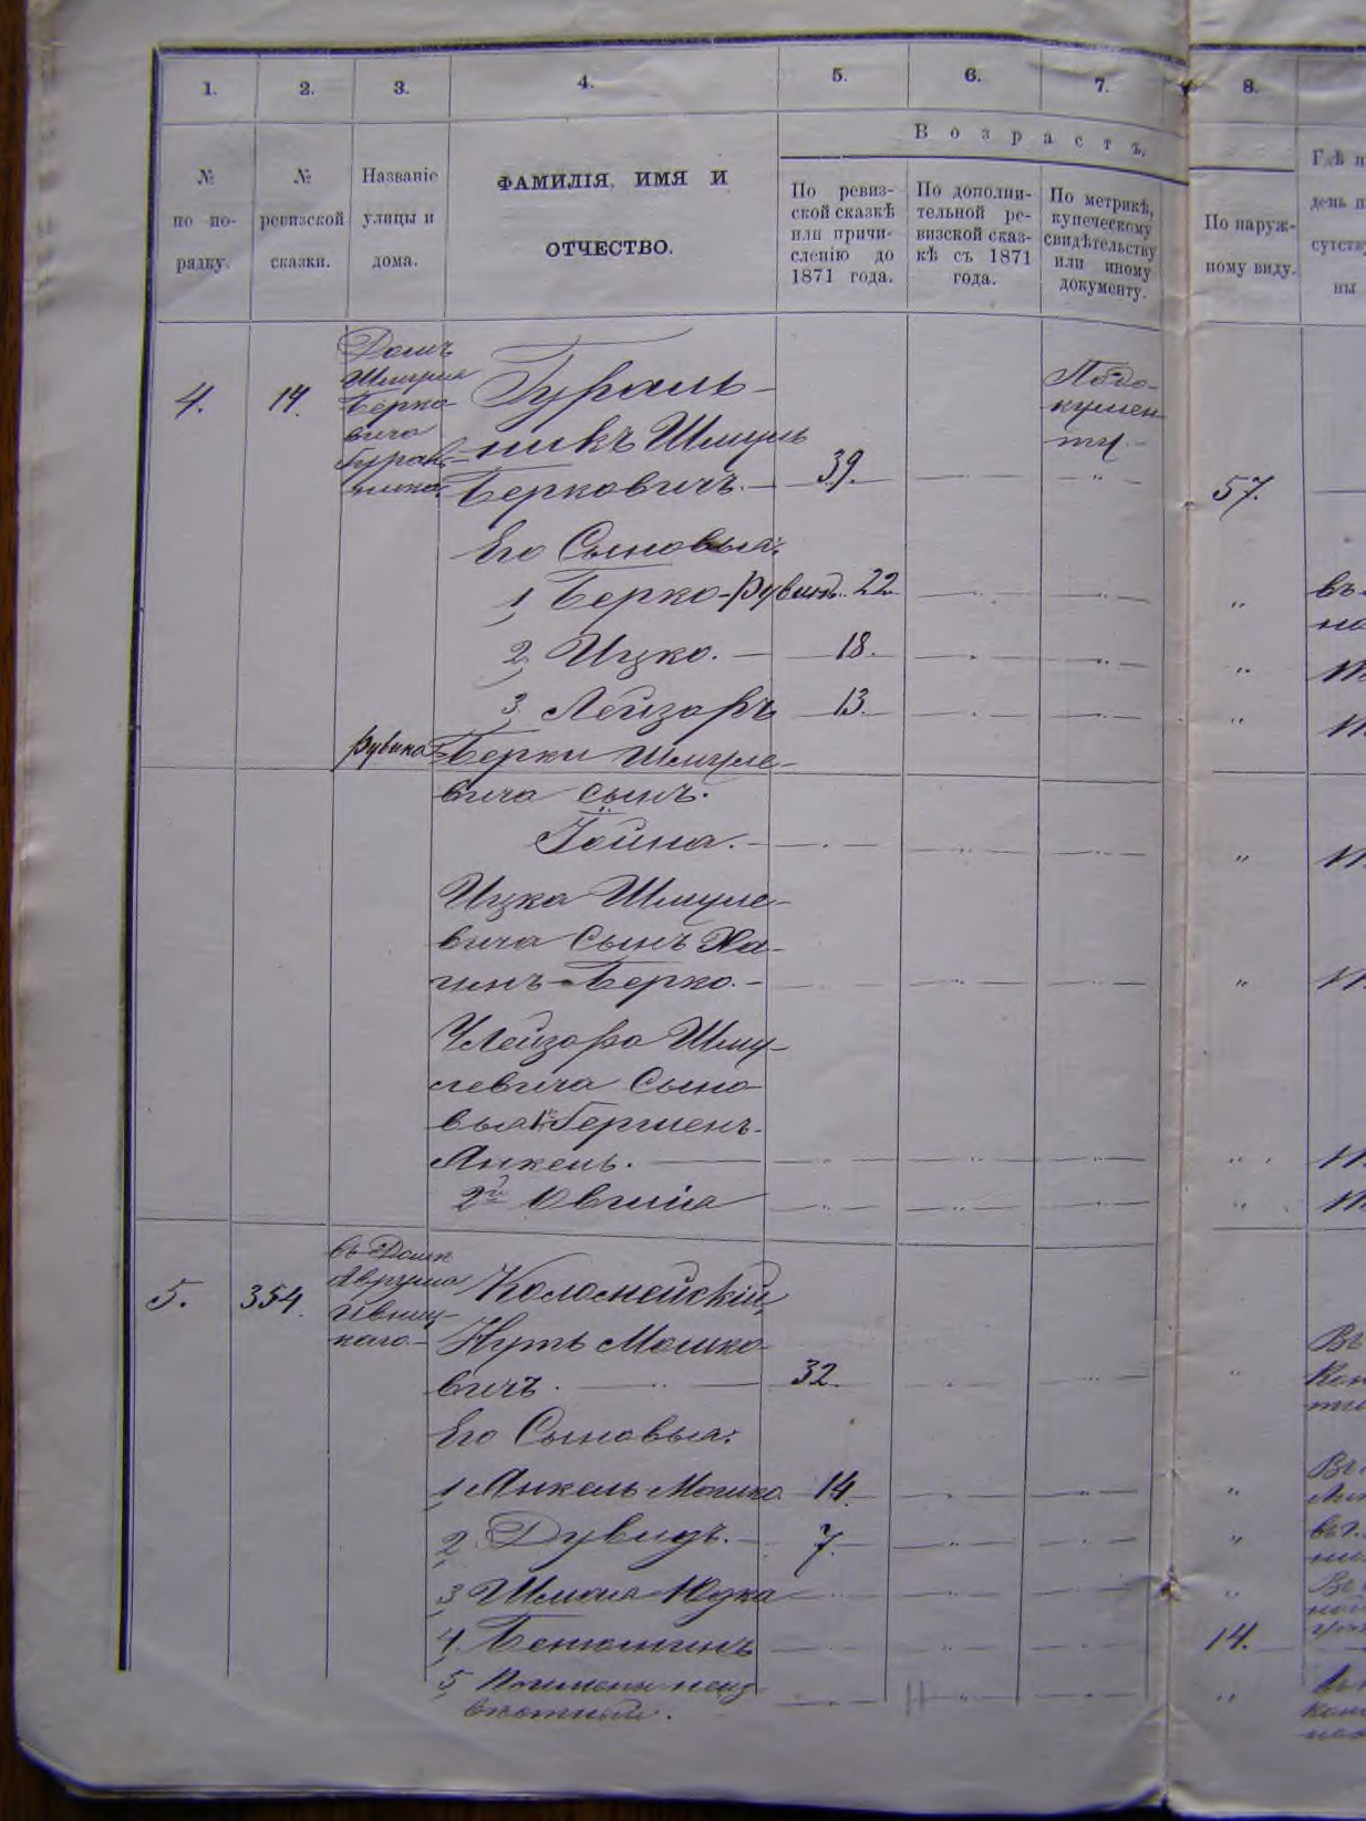 1. 2. 3. 4. 5. 6. 7. 8.
Возрастъ.
№ по по-рядку.
№ ревизской сказки.
Названіе улицы и дома.
ФАМИЛІЯ, ИМЯ И
ОТЧЕСТВО.
По ревиз-
ской сказкѣ
или причи-
сленію до
1871 года.
По дополни-
тельной ре-
визской сказ-
кѣ съ 1871
года.
По метрикѣ,
купеческому
свидѣтельству
или иному
документу.
По наруж-
ному виду.
Гдѣ
день
ны
4. 14.
Домъ
Шмуля
Берко-
вича
Гураль-
ника.
Гураль-
никъ Шмуль
Берковичъ. 39. 57.
По до-
кумен-
ту.
Его Сыновья:
1, Берко-Рувинъ. 22.
2, Ицко. 18.
3, Лейзоръ 13.
Рувина Берки Шмуле-
вича сынъ.
Іойна.
Ицка Шмуле-
вича Сынъ Ха-
имъ-Берко.
Лейзора Шму-
левича Сыно-
вья 1й Гершенъ-
Янкель.
2й
5. 354.
въ Домѣ
Аврума
Коломейскій,
Нутъ Мошко-
вичъ. 32.
Его Сыновья:
1, Янкель-Мошко 14.
2, Дувидъ. 7.
3, Шмыль-Юдка
4, Бенюминъ 14.
5, По имени неиз
вѣстный.